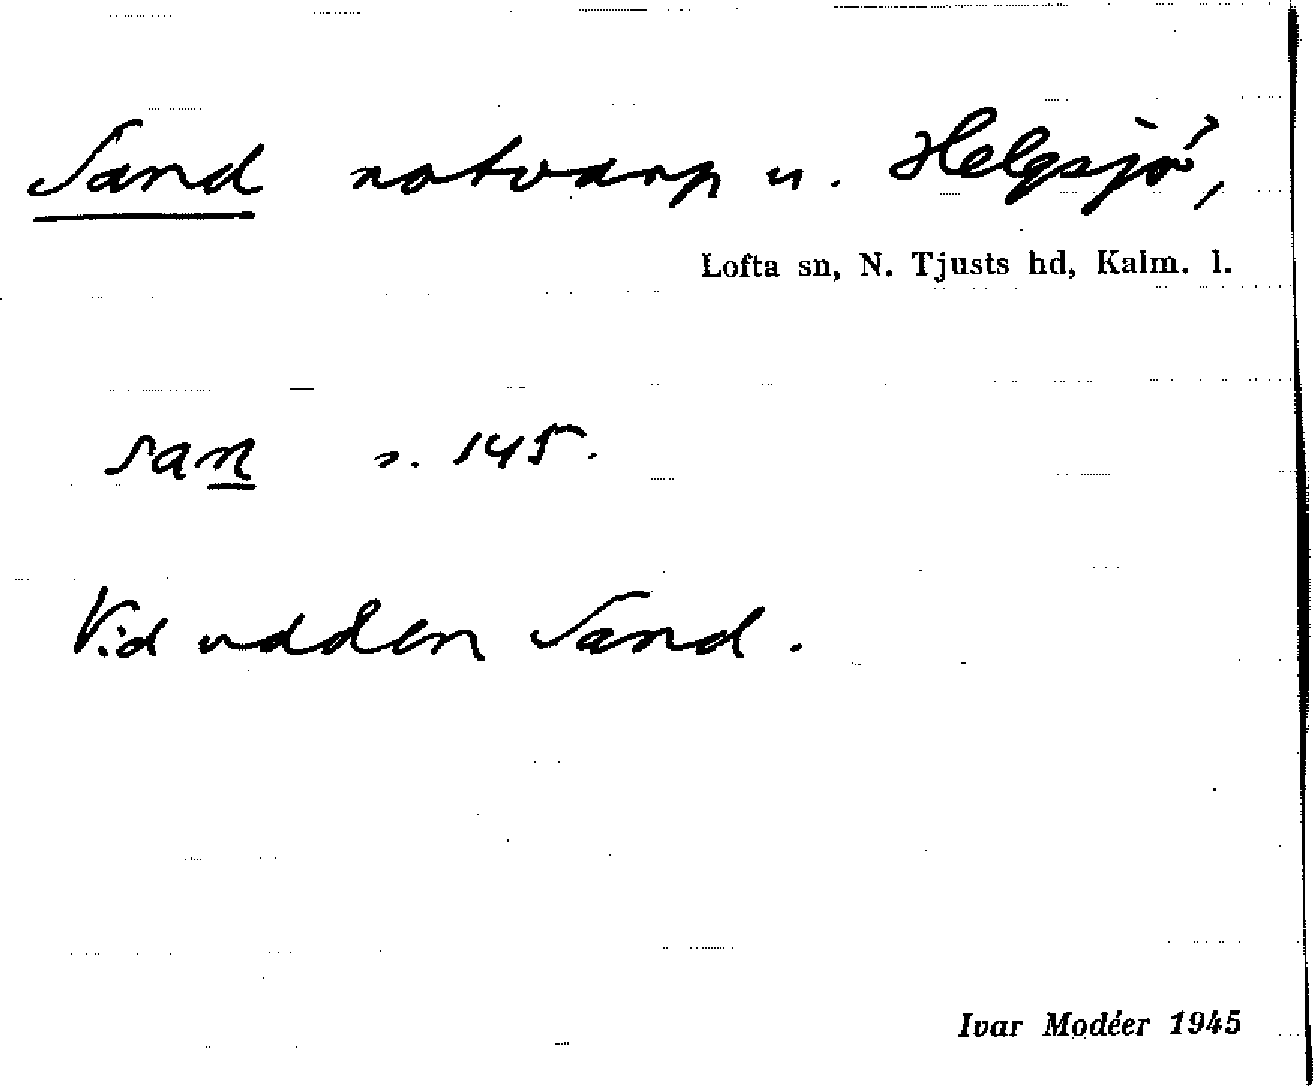 Sand notvarp u. Helgsjö,
Lofta sn, N. Tjusts hd, Kalm. l.
san s. 145.
Vid udden Sand.
Ivar Modéer 1945